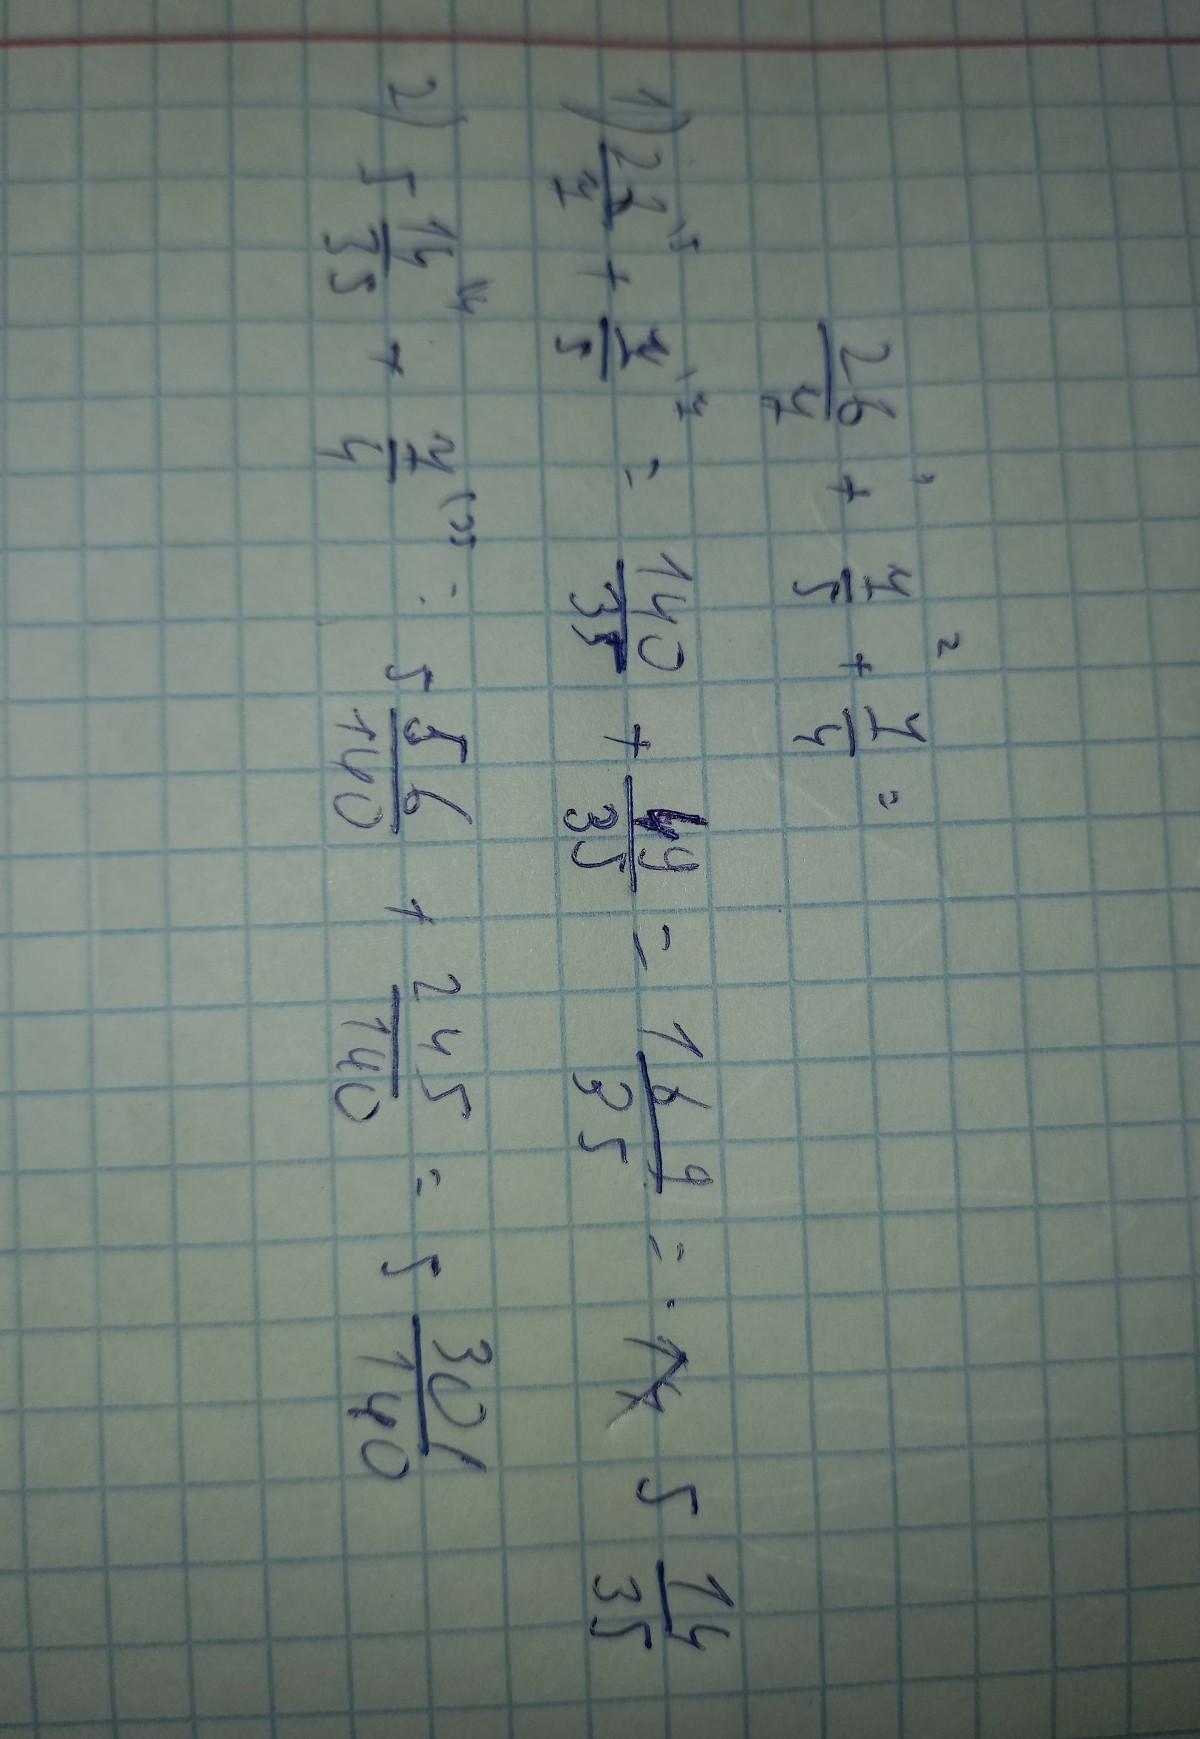 1 2
26/7 + 7/5 + 7/4 =
1) /7 \5 + 7/5 \7 = 140/35 + 49/35 = 169/35 = 5 14/35
2) 5 14/35 \4 + 7/4 \35 = 5 56/140 + 245/140 = 5 301/140